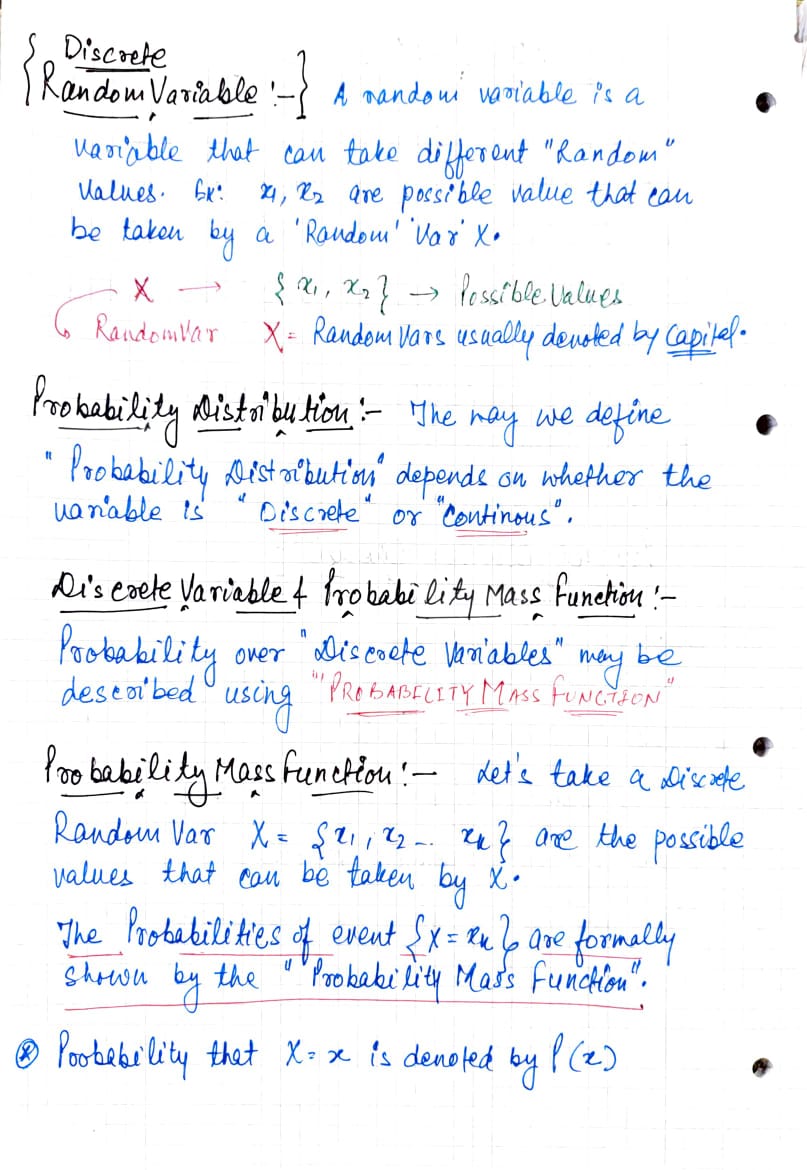 {Discrete
Random Variable :-} A random variable is a
variable that can take different "Random"
Values. Ex: x1, x2 are possible value that can
be taken by a 'Random' 'Var' X.
X → {x1, x2} → Possible Values
RandomVar X = Random Vars usually denoted by Capital.
Probability Distribution :- The way we define
"Probability Distribution" depends on whether the
variable is "Discrete" or "Continous".
Discrete Variable & Probability Mass Function :-
Probability over "Discrete Variables" may be
described using "PROBABELITY MASS FUNCTION"
Probability Mass Function :- Let's take a Discrete
Random Var X = {x1, x2 -.. xk} are the possible
values that can be taken by X.
The Probabilities of event {X = xk} are formally
shown by the "Probability Mass Function".
⊛ Probability that X = x is denoted by P(x)